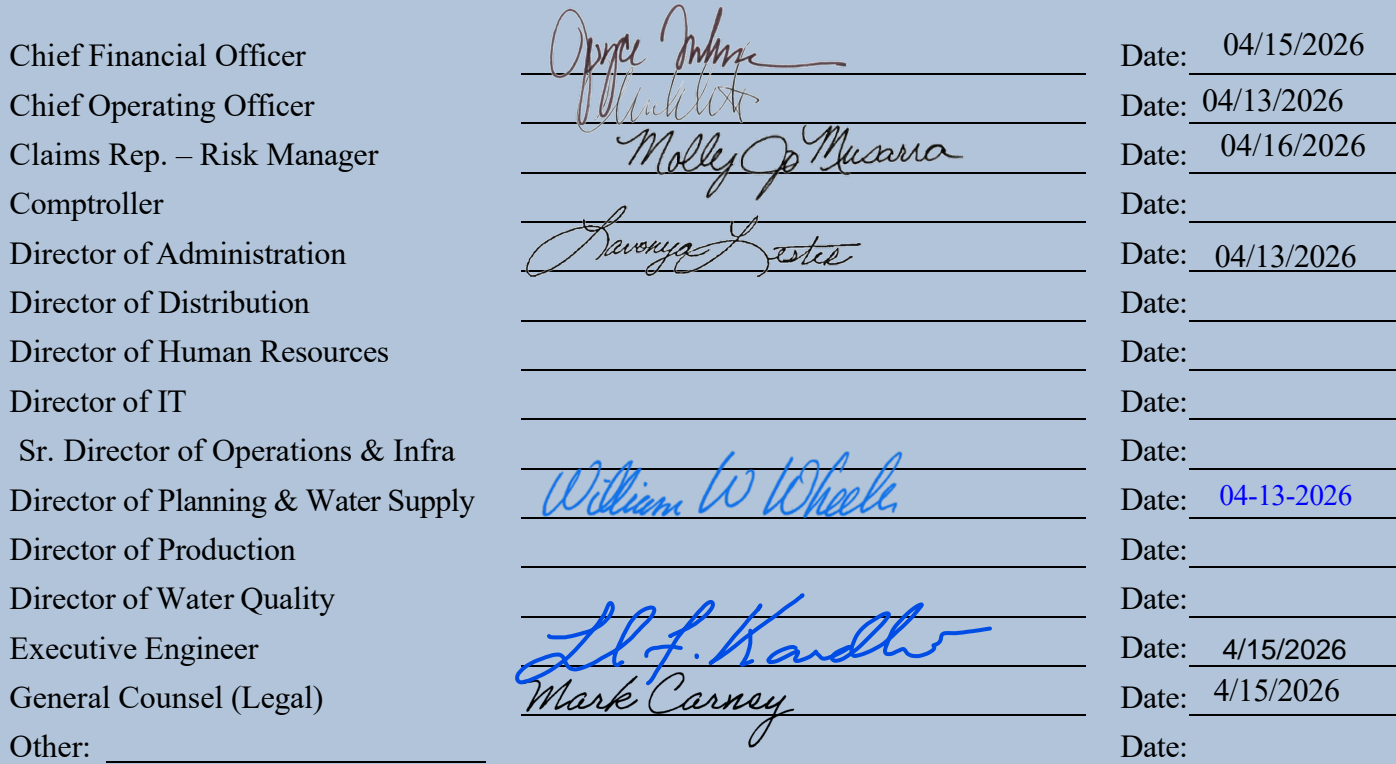 Chief Financial Officer Date: 04/15/2026
Chief Operating Officer Date: 04/13/2026
Claims Rep. – Risk Manager Molly Jo Musarra Date: 04/16/2026
Comptroller Date:
Director of Administration Lavonya Lester Date: 04/13/2026
Director of Distribution Date:
Director of Human Resources Date:
Director of IT Date:
Sr. Director of Operations & Infra Date:
Director of Planning & Water Supply William W Wheeler Date: 04-13-2026
Director of Production Date:
Director of Water Quality Date:
Executive Engineer Date: 4/15/2026
General Counsel (Legal) Mark Carney Date: 4/15/2026
Other: Date: